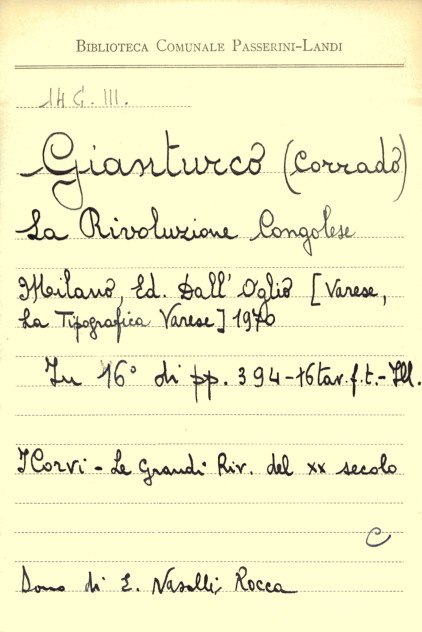 BIBLIOTECA COMUNALE PASSERINI-LANDI
14 G. III.
Gianturco (Corrado)
La Rivoluzione Congolese
Milano, Ed. Dall' Oglio [Varese,
La Tipografica Varese] 1970
In 16° di pp. 394-16 tav. f.t.- Ill.
I Corvi - Le Grandi Riv. del xx secolo
C
Dono di E. Naselli Rocca